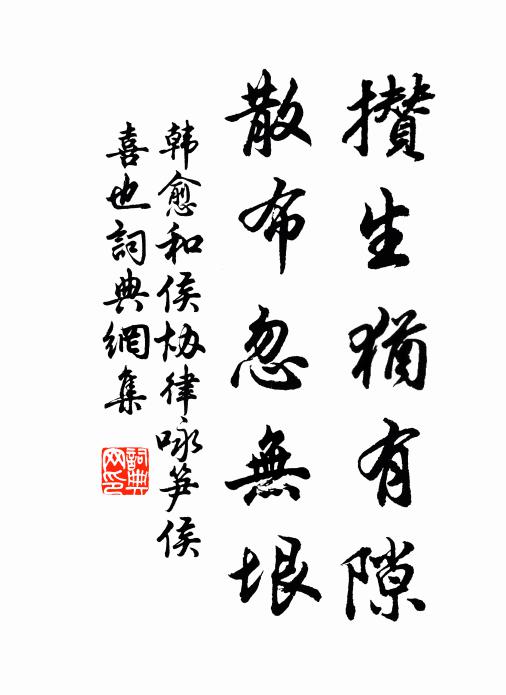 攢生猶有隙
散布忽無垠
韓愈和侯協律咏笋侯
喜也詞典網集
詞典网印